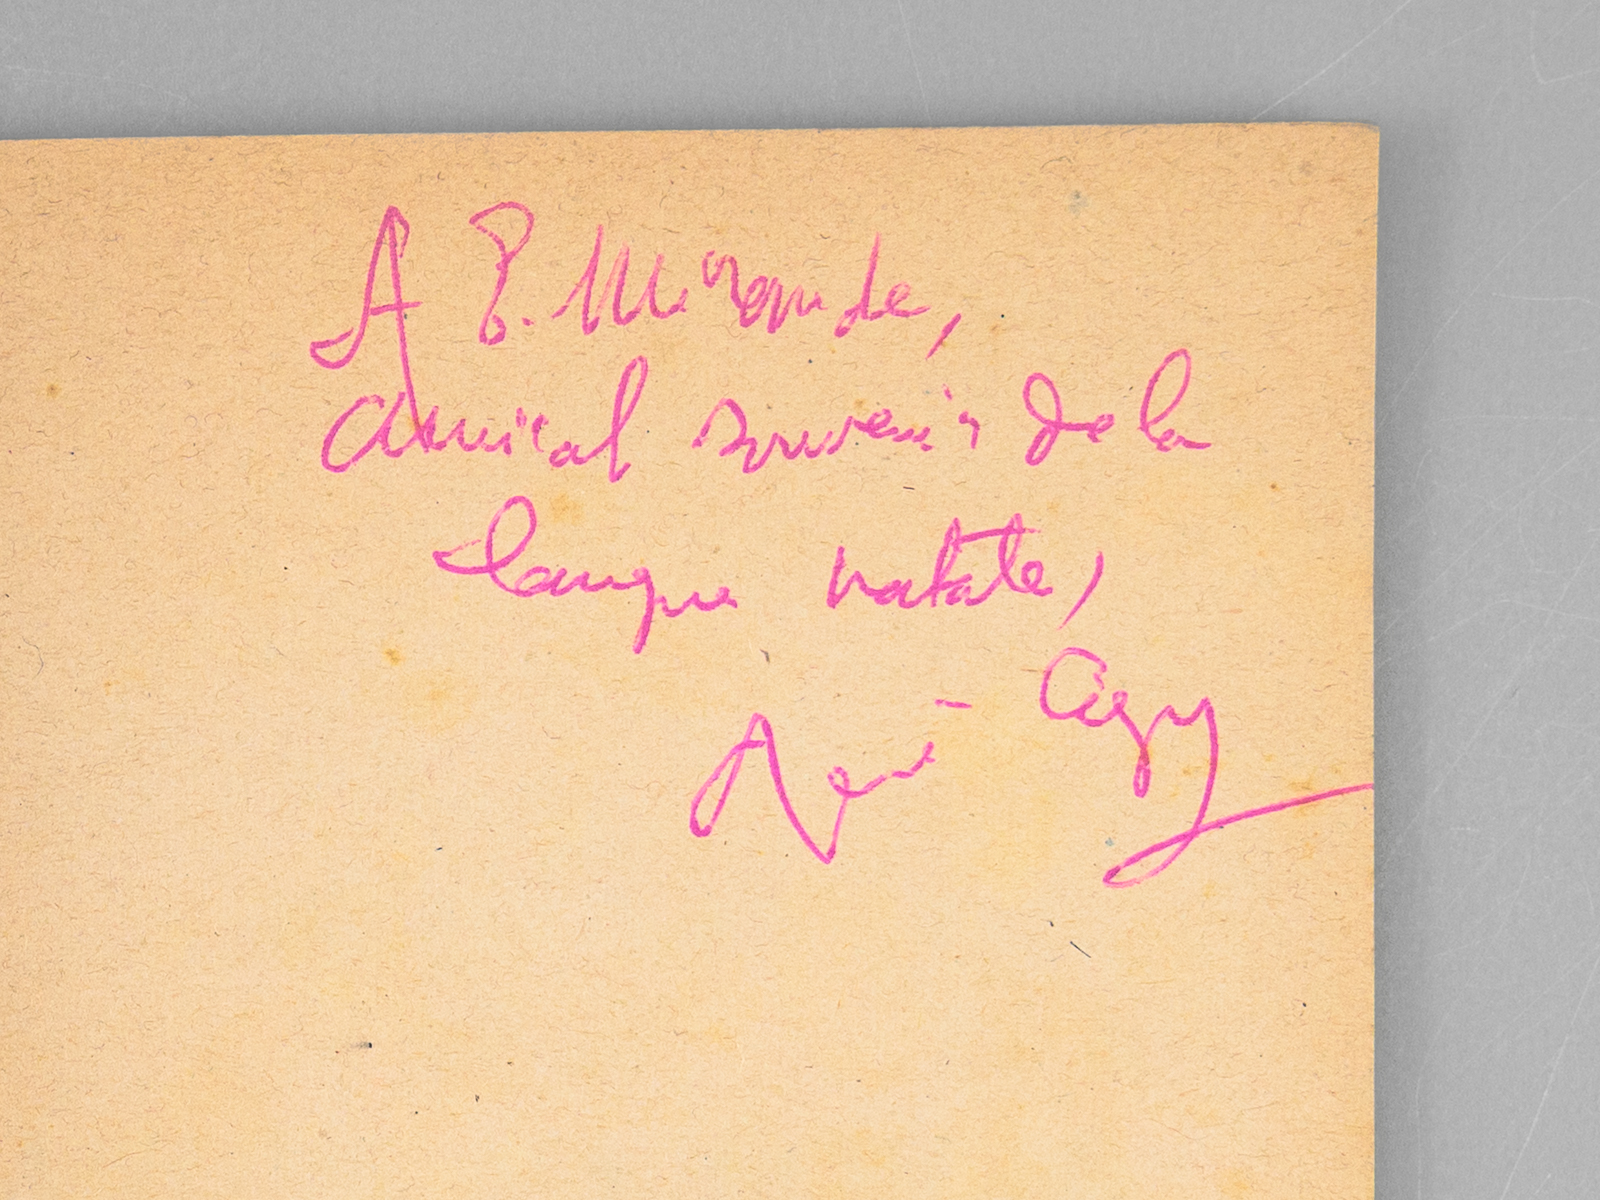 A P. Mirande,
amical souvenir de la
langue natale,
René